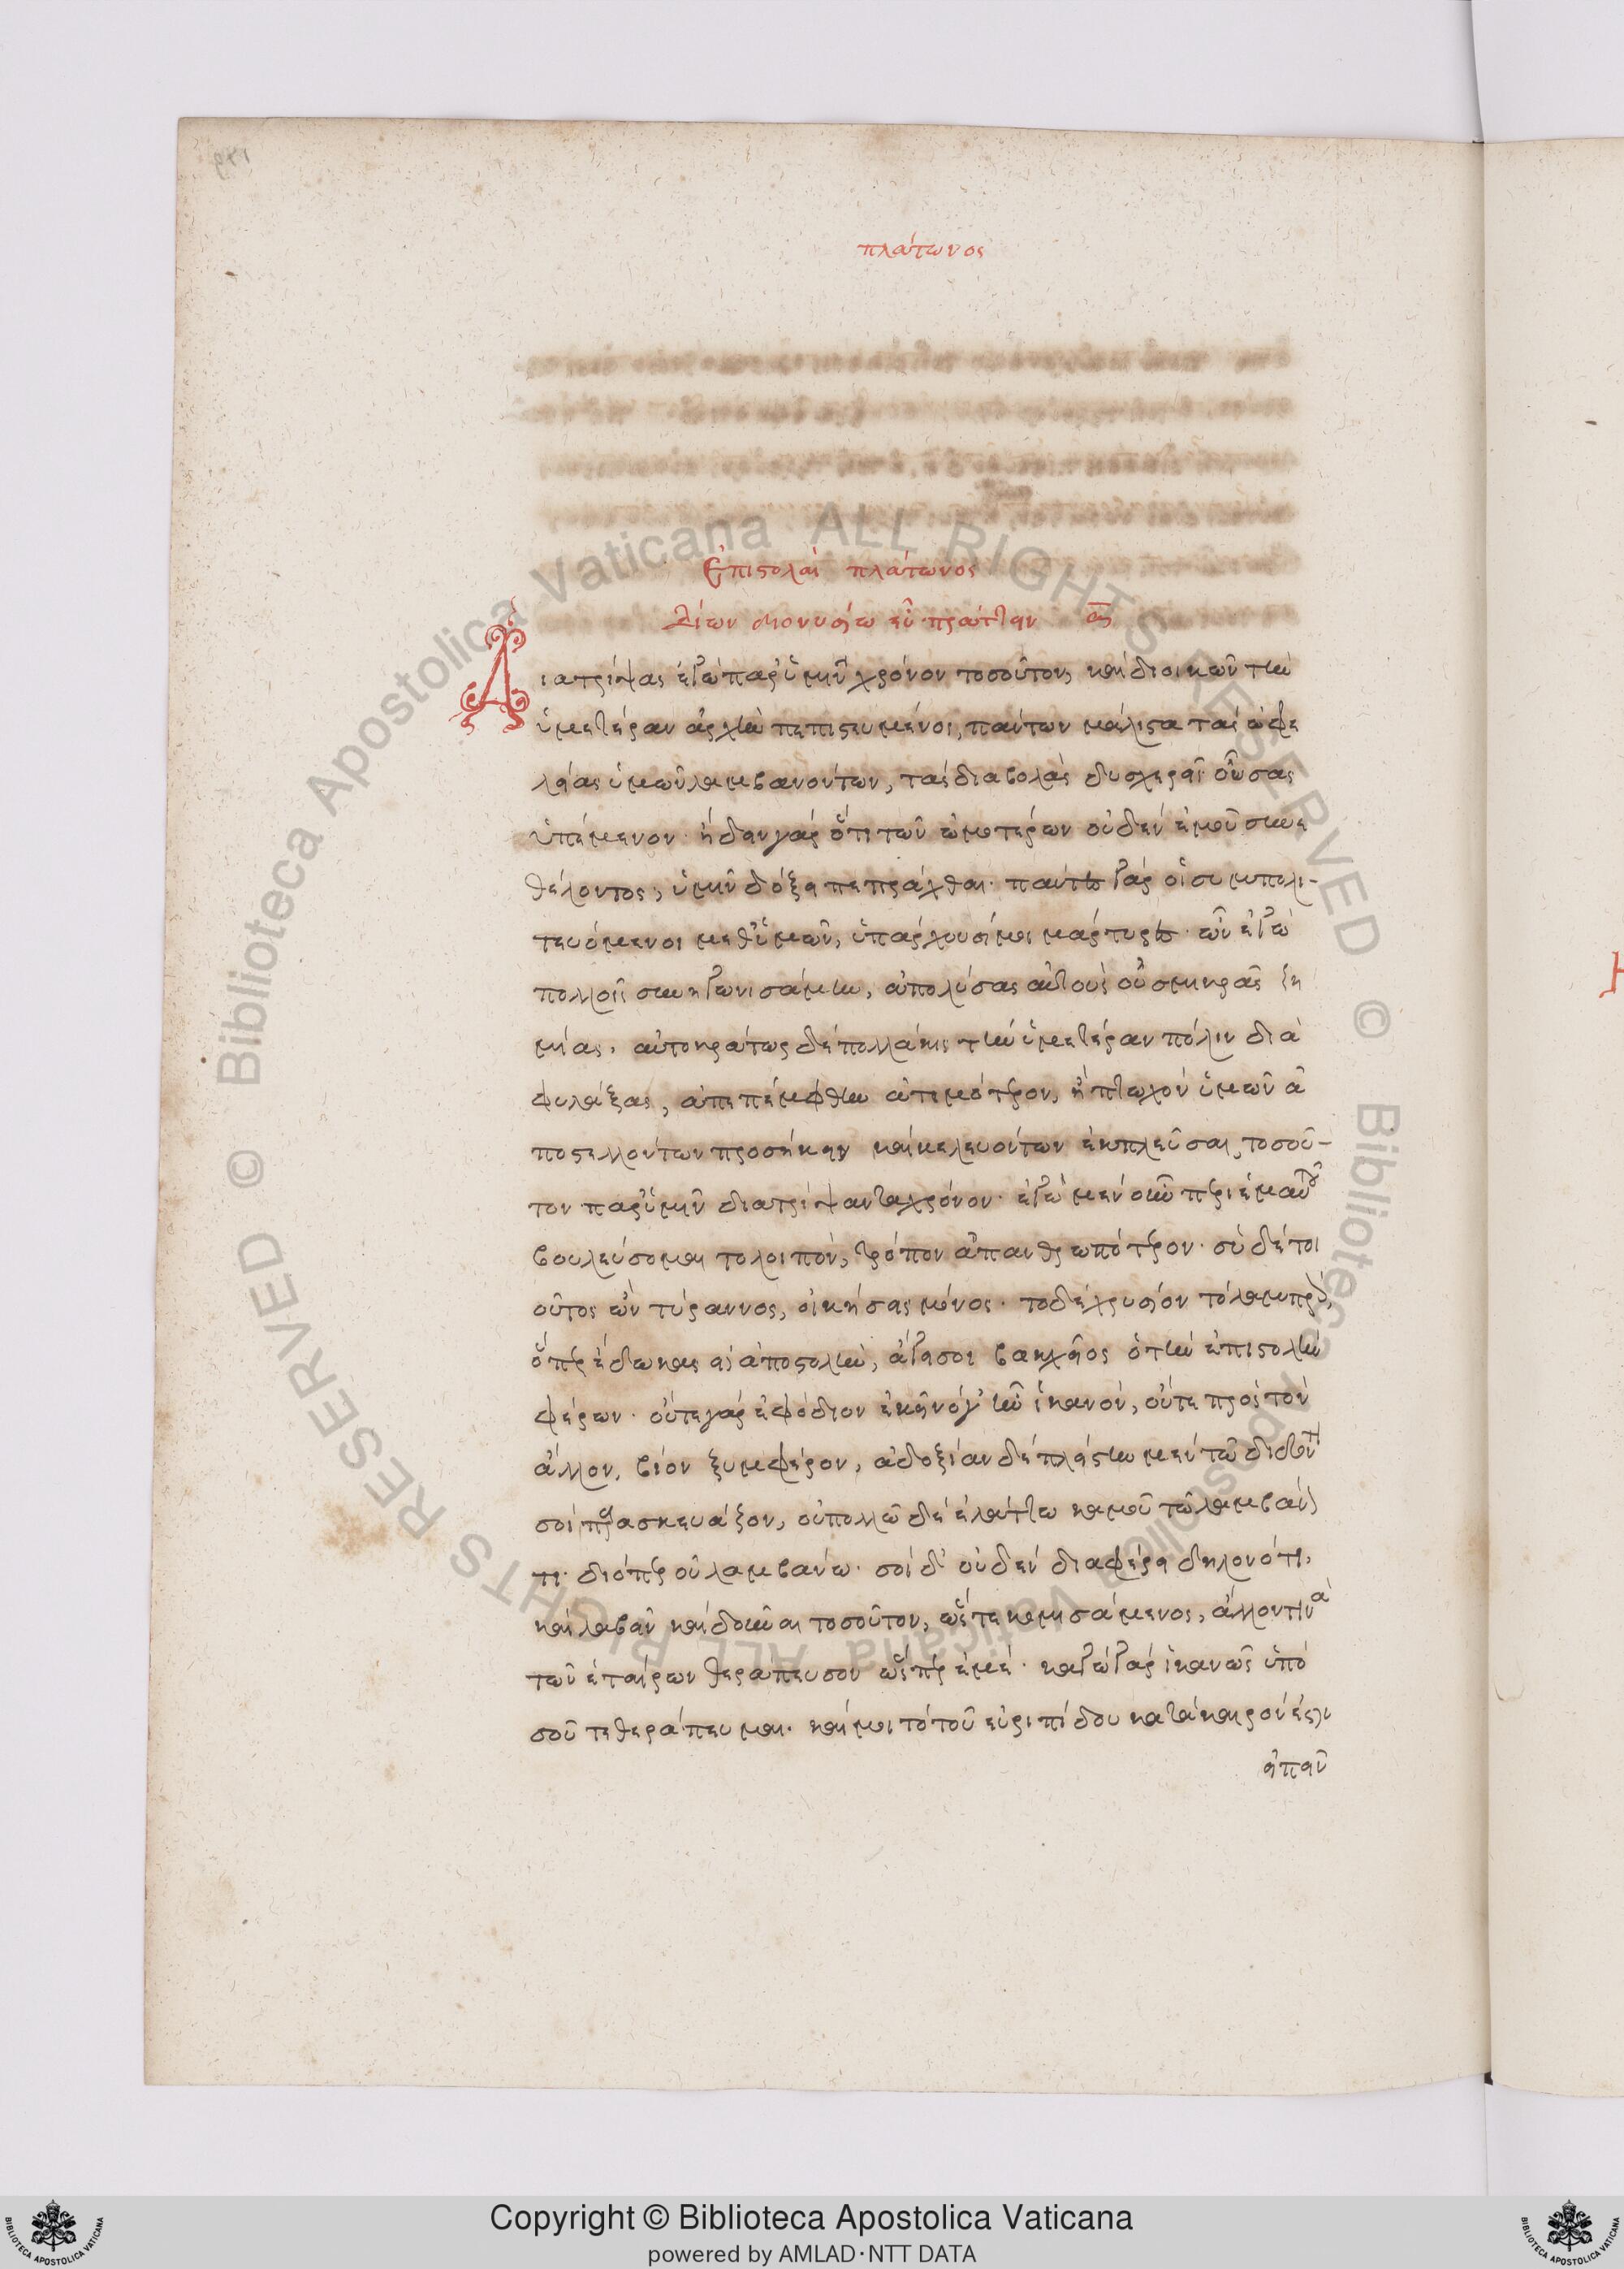 πλάτωνος
Ἐπιστολαὶ πλάτωνος
Δίων διονυσίω εὖ πράττειν α
Διατρίψας ἐγὼ παρ' ὑμῖν χρόνον τοσοῦτον, καὶ διοικῶν τὴν
ὑμετέραν ἀρχὴν πεπιστευμένοι, πάντων μάλιστα τὰς ὠφε
λείας ὑμῶν λαμβανόντων, τὰς διαβολὰς δυσχερεῖς οὔσας
ὑπέμενον· ἤδειν γὰρ ὅτι τῶν ὠμοτέρων οὐδὲν ἐμοῦ συνε
θέλοντος, ὑμῖν δόξει πεπράχθαι· πάντες γὰρ οἱ συμπολι-
τευόμενοι μεθ' ὑμῶν, ὑπάρχουσί μοι μάρτυρες· ὧν ἐγὼ
πολλοῖς συνηγωνισάμην, ἀπολύσας αὐτοὺς οὐ σμικρᾶς ζη
μίας, αὐτοκράτωρ δὲ πολλάκις τὴν ὑμετέραν πόλιν δια
φυλάξας, ἀπεπέμφθην ἀτιμότερον, ἢ πτωχὸν ὑμῶν ἀ
ποστελλόντων προσήκειν καὶ κελευόντων ἐκπλεῦσαι, τοσοῦ-
τον παρ' ὑμῖν διατρίψαντα χρόνον· ἐγὼ μὲν οὖν περὶ ἐμαυτοῦ
βουλεύσομαι τολοιπὸν, τρόπον ἀπανθρωπότερον· σὺ δὲ τοι
οῦτος ὢν τύραννος, οἰκήσεις μόνος· τὸ δὲ χρυσίον τὸ λαμπρὸν,
ὅπερ ἔδωκας εἰς ἀποστολὴν, ἄγει σοι βακχεῖος ὁ τὴν ἐπιστολὴν
φέρων· οὔτε γὰρ ἐφόδιον ἐκεῖνό γ' ἦν ἱκανὸν, οὔτε πρὸς τὸν
ἄλλον βίον ξυμφέρον, ἀδοξίαν δὲ πλείστην μὲν τῶ διδόντι
σοὶ παρασκευάζον, οὐ πολλῶ δὲ ἐλάττω καμοὶ τῶ λαμβάνον
τι· διόπερ οὐ λαμβάνω· σοὶ δ' οὐδὲν διαφέρει δηλονότι,
καὶ λαβεῖν καὶ δοῦναι τοσοῦτον, ὥστε κομισάμενος, ἄλλον τινὰ
τῶν ἑταίρων θεράπευσον ὥσπερ ἐμέ· κἀγὼ γὰρ ἱκανῶς ὑπὸ
σοῦ τεθεράπευμαι· καί μοι τὸ τοῦ εὐριπίδου κατὰ καιρόν ἐστιν
εἰπεῖν
Copyright © Biblioteca Apostolica Vaticana
powered by AMLAD·NTT DATA